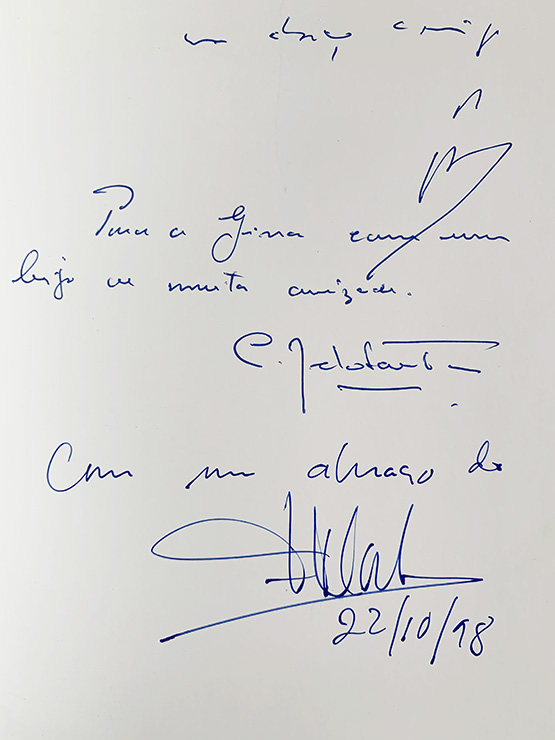 um abraço amigo
Para a Gina com um
beijo de muita amizade.
C.
Com um abraço de
22/10/98